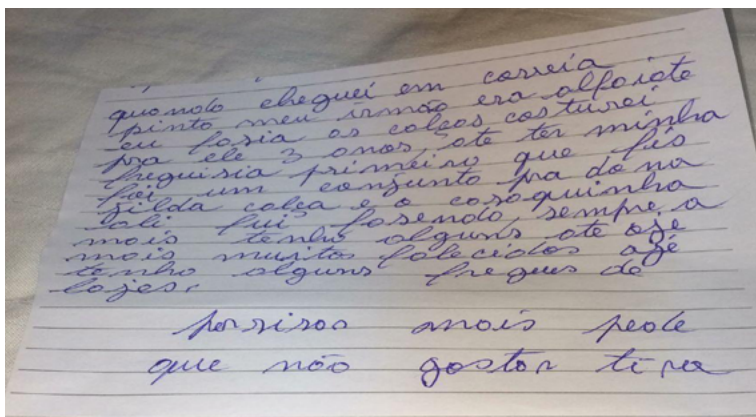 quando cheguei em correia
pinto meu irmão era alfaiate
eu fasia as calças costurei
pra ele 3 anos, ate ter minha
freguisia primeiro que fis
foi um conjunto pra dona
zilda calça e o casaquinha
ali fui fasendo, sempre, a
mais tenho alguns ate oje
mais muitos falecidos oje
tenho alguns fregues de
lojes.
mais pode
que não gostar tira